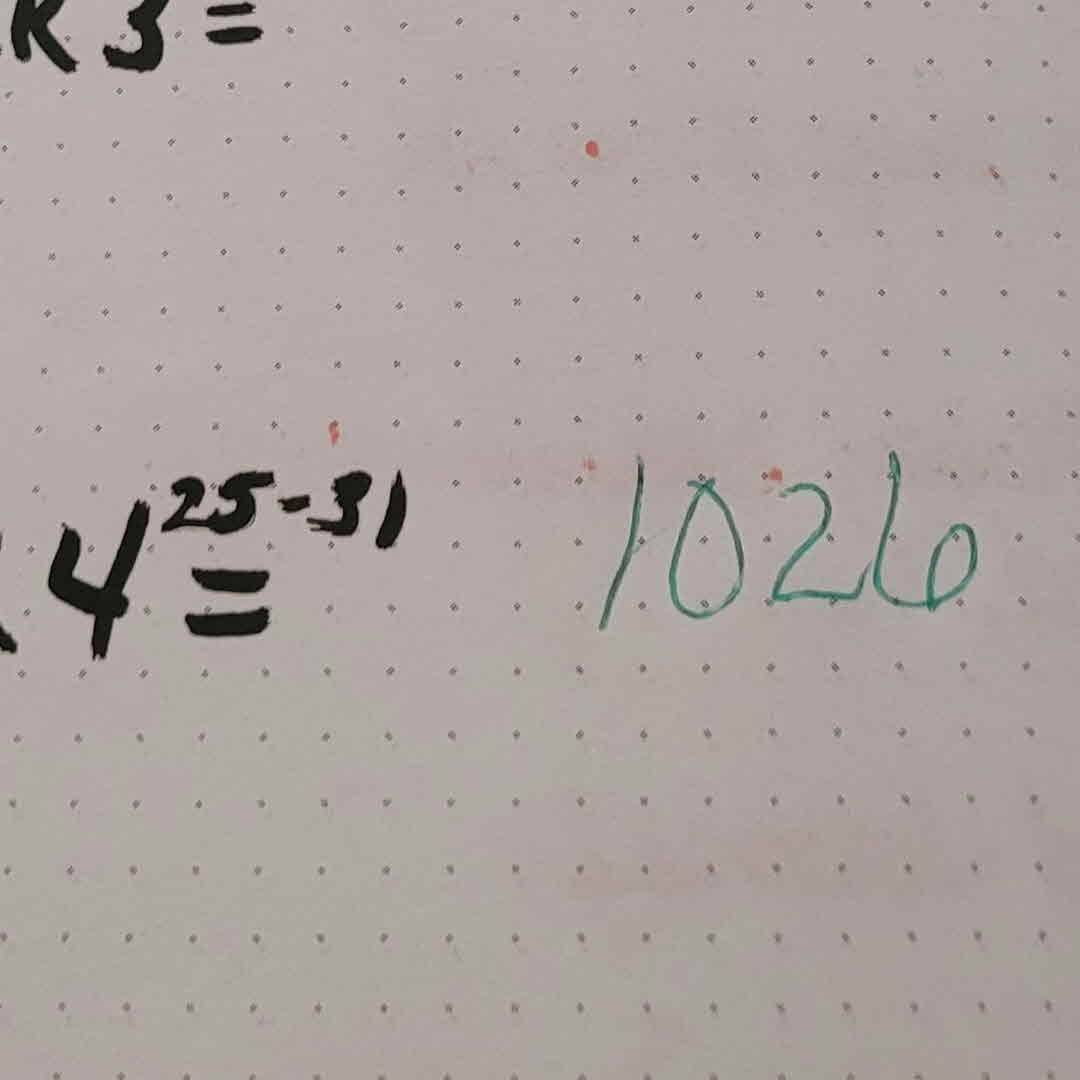 K 3 =
4 25-31 = 1026